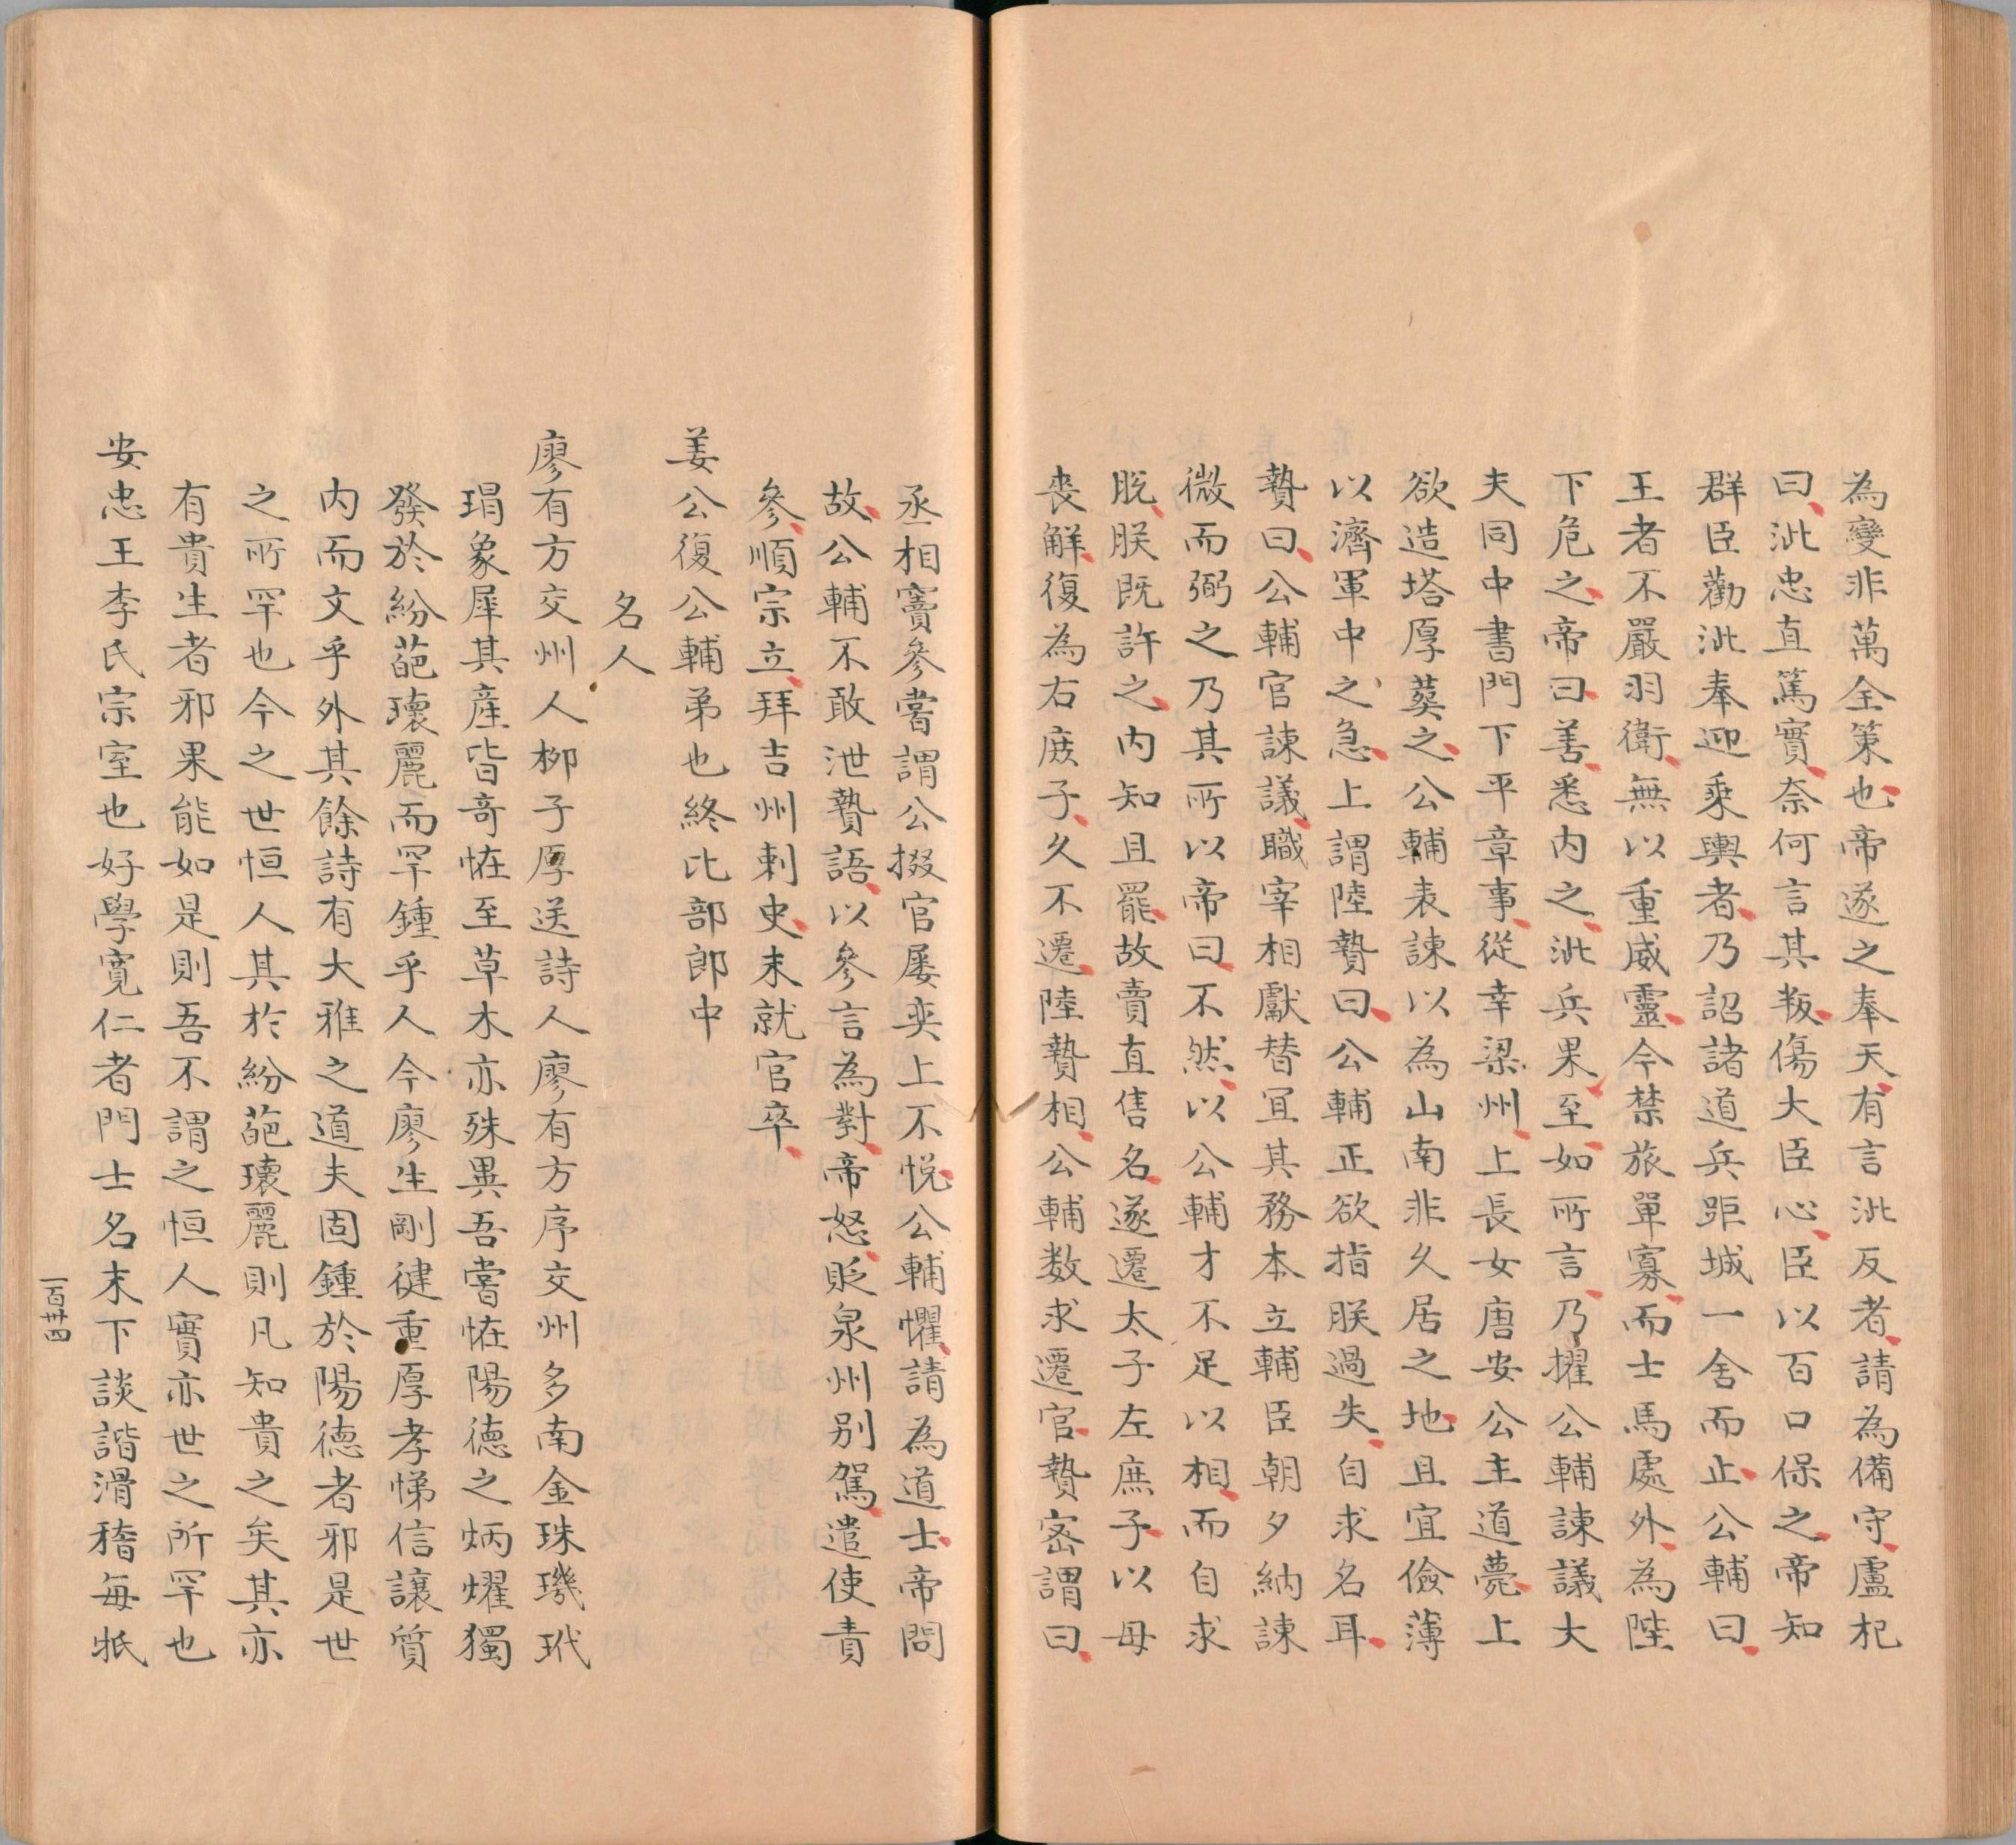 為變非萬全策也帝遂之奉天有言泚反者請為備守盧杞
曰泚忠直篤實奈何言其叛傷大臣心臣以百口保之帝知
群臣勸泚奉迎乘輿者乃詔諸道兵距城一舍而止公輔曰
王者不嚴羽衛無以重威靈今禁旅單寡而士馬處外為陛
下危之帝曰善悉内之泚兵果至如所言乃擢公輔諫議大
夫同中書門下平章事從幸梁州上長女唐安公主道薨上
欲造塔厚葬之公輔表諫以為山南非久居之地且宜儉薄
以濟軍中之急上謂陸贄曰公輔正欲指朕過失自求名耳
贄曰公輔官諫議職宰相獻替冝其務本立輔臣朝夕納諫
微而弼之乃其所以帝曰不然以公輔才不足以相而自求
脫朕既許之内知且罷故賣直售名遂遷太子左庶子以母
喪解復為右庶子久不遷陸贄相公輔数求遷官贄密謂曰
丞相竇參嘗謂公掇官屡奕上不悅公輔懼請為道士帝問
故公輔不敢泄贄語以參言為對帝怒貶泉州别駕遣使責
參順宗立拜吉州刺史未就官卒
姜公復公輔弟也終比部郎中
名人
廖有方交州人柳子厚送詩人廖有方序交州多南金珠璣玳
瑁象犀其産皆奇恠至草木亦殊異吾嘗恠陽德之炳燿獨
發於紛葩瓌麗而罕鍾乎人今廖生剛健重厚孝悌信讓質
内而文乎外其餘詩有大雅之道夫固鍾於陽德者邪是世
之所罕也今之世恒人其於紛葩瓌麗則凡知貴之矣其亦
有貴生者邪果能如是則吾不謂之恒人實亦世之所罕也
安忠王李氏宗室也好學寬仁者門士名末下談諧滑稽每牴
一百卅四